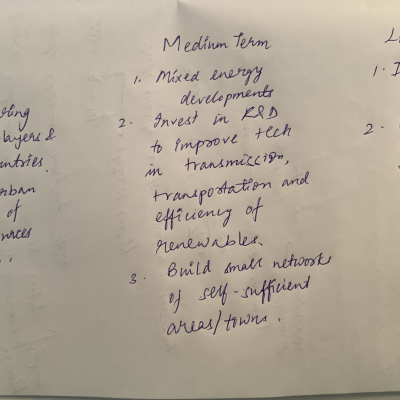 Medium Term
1. Mixed energy
developments
2. Invest in R&D
to improve tech
in transmission,
transportation and
efficiency of
renewables.
3. Build small networks
of self-sufficient
areas/towns.
&
urban
of
1.
2.